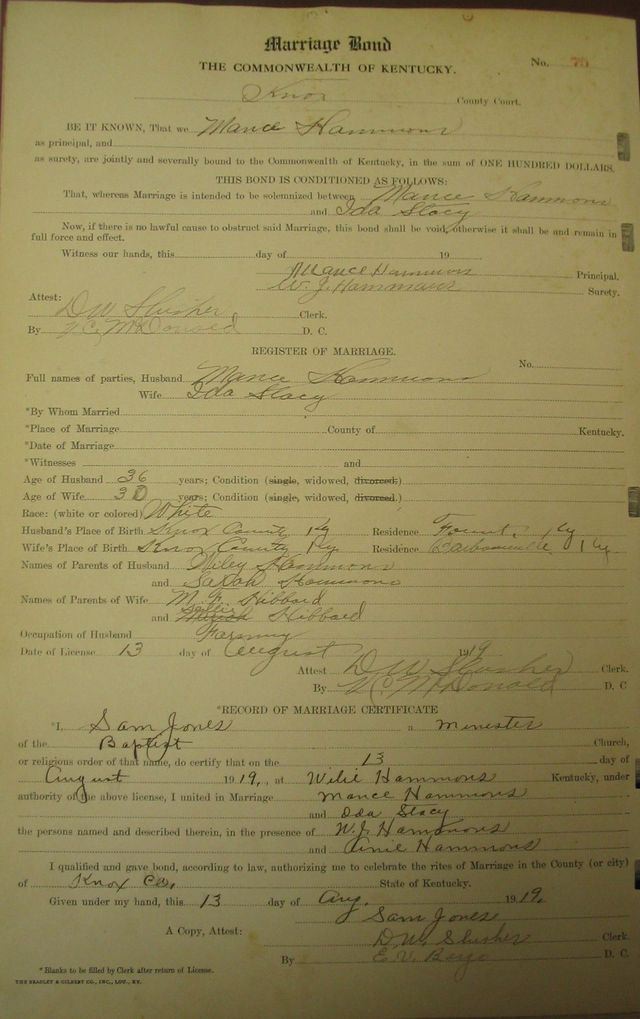 Marriage Bond
THE COMMONWEALTH OF KENTUCKY.
No. 75
Knox County Court.
BE IT KNOWN, That we Mance Hammons
as principal, and
as surety, are jointly and severally bound to the Commonwealth of Kentucky, in the sum of ONE HUNDRED DOLLARS.
THIS BOND IS CONDITIONED AS FOLLOWS:
That, whereas Marriage is intended to be solemnized between Mance Hammons
and Ida Stacy
Now, if there is no lawful cause to obstruct said Marriage, this bond shall be void, otherwise it shall be and remain in
full force and effect.
Witness our hands, this day of 19
Mance Hammons Principal.
W. J. Hammons Surety.
Attest:
D W Slusher Clerk.
By V. C. McDonald D. C.
REGISTER OF MARRIAGE.
No.
Full names of parties, Husband Mance Hammons
Wife Ida Stacy
*By Whom Married
*Place of Marriage County of Kentucky.
*Date of Marriage
*Witnesses and
Age of Husband 36 years; Condition (single, widowed, divorced.)
Age of Wife 30 years; Condition (single, widowed, divorced.)
Race: (white or colored) White
Husband's Place of Birth Knox County Ky Residence Fount, Ky
Wife's Place of Birth Knox County Ky Residence Barbourville Ky.
Names of Parents of Husband Wiley Hammons
and Sarah Hammons
Names of Parents of Wife M. F. Hibbard
and Hibbard
Occupation of Husband Farming
Date of License 13 day of August 1919
Attest D W Slusher Clerk.
By V. C. McDonald D. C
*RECORD OF MARRIAGE CERTIFICATE
*I, Sam Jones a Minester
of the Baptist Church,
or religious order of that name, do certify that on the 13 day of
August 1919, at Wilie Hammons Kentucky, under
authority of the above license, I united in Marriage Mance Hammons
and Ida Stacy
the persons named and described therein, in the presence of W. J. Hammons
and Hammons
I qualified and gave bond, according to law, authorizing me to celebrate the rites of Marriage in the County (or city)
of Knox Co, State of Kentucky.
Given under my hand, this 13 day of Aug. 1919,
Sam Jones
A Copy, Attest: D W. Slusher Clerk
By E. V. D. C.
*Blanks to be filled by Clerk after return of License.
THE BRADLEY & GILBERT CO., INC., LOU., KY.